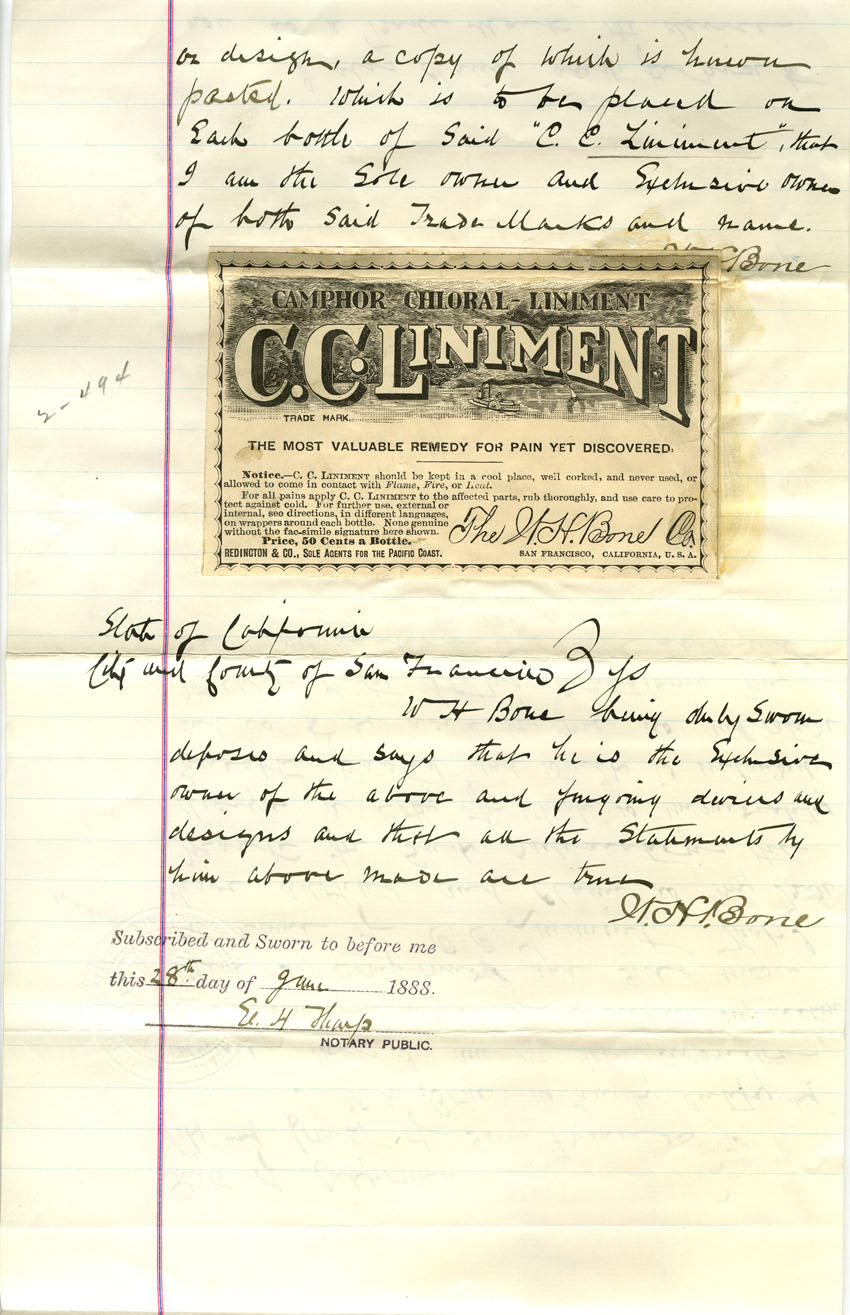 or design, a copy of which is hereon
pasted. Which is to be placed on
Each bottle of Said "C. C. Liniment", that
I am the Sole owner and Exclusive owner
of both Said Trade Marks and name.
Bone
CAMPHOR CHLORAL-LINIMENT
C.C. LINIMENT
TRADE MARK.
THE MOST VALUABLE REMEDY FOR PAIN YET DISCOVERED.
Notice.—C. C. LINIMENT should be kept in a cool place, well corked, and never used, or
allowed to come in contact with Flame, Fire, or Heat.
For all pains apply C. C. LINIMENT to the affected parts, rub thoroughly, and use care to pro-
tect against cold. For further use, external or
internal, see directions, in different languages,
on wrappers around each bottle. None genuine
without the fac-simile signature here shown.
The W. H. Bone Co.
Price, 50 Cents a Bottle.
REDINGTON & CO., SOLE AGENTS FOR THE PACIFIC COAST.
SAN FRANCISCO, CALIFORNIA, U. S. A.
2-494
State of California
City and County of San Francisco } ss
W H Bone being duly Sworn
deposes and says that he is the Exclusive
owner of the above and foregoing devices and
designs and that all the Statements by
him above made are true
W. H. Bone
Subscribed and Sworn to before me
this 28th day of June 1888.
E. H Tharp
NOTARY PUBLIC.